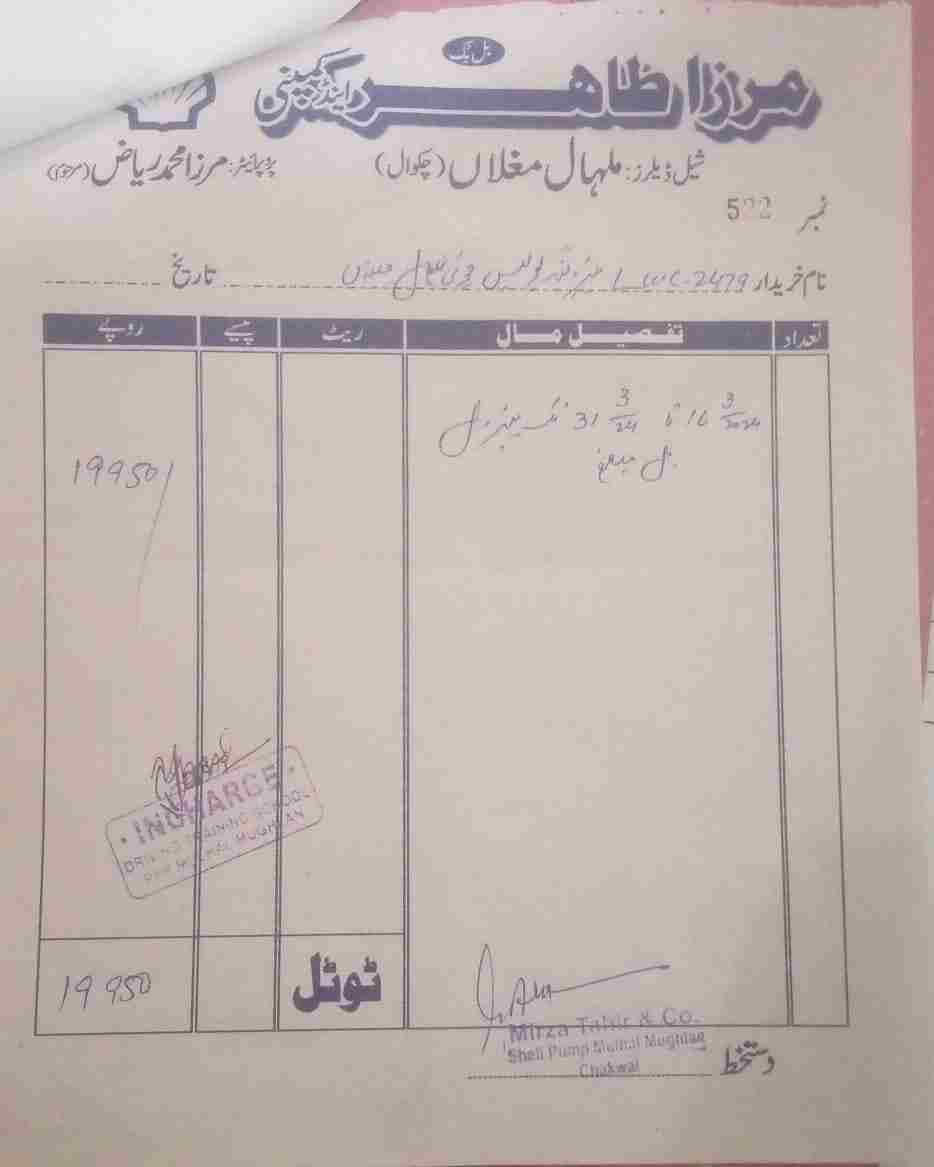 بل بک
مرزا طاہر اینڈ کمپنی
شیل ڈیلرز: ملہال مغلاں (چکوال) پروپرائیٹر: مرزا محمد ریاض (مرحوم)
نمبر 522
نام خریدار LWC-2479 پولیس تاریخ
تعداد تفصیل مال ریٹ پیسے روپے
16 3/2024 تا 31 3/24 تک پیٹرول
بل مبلغ
19950/
INCHARGE
DRIVING TRAINING SCHOOL
MULHAL MUGHLAN
ٹوٹل 19950
Mirza Tahir & Co.
Shell Pump Mulhal Mughlan
Chakwal
دستخط